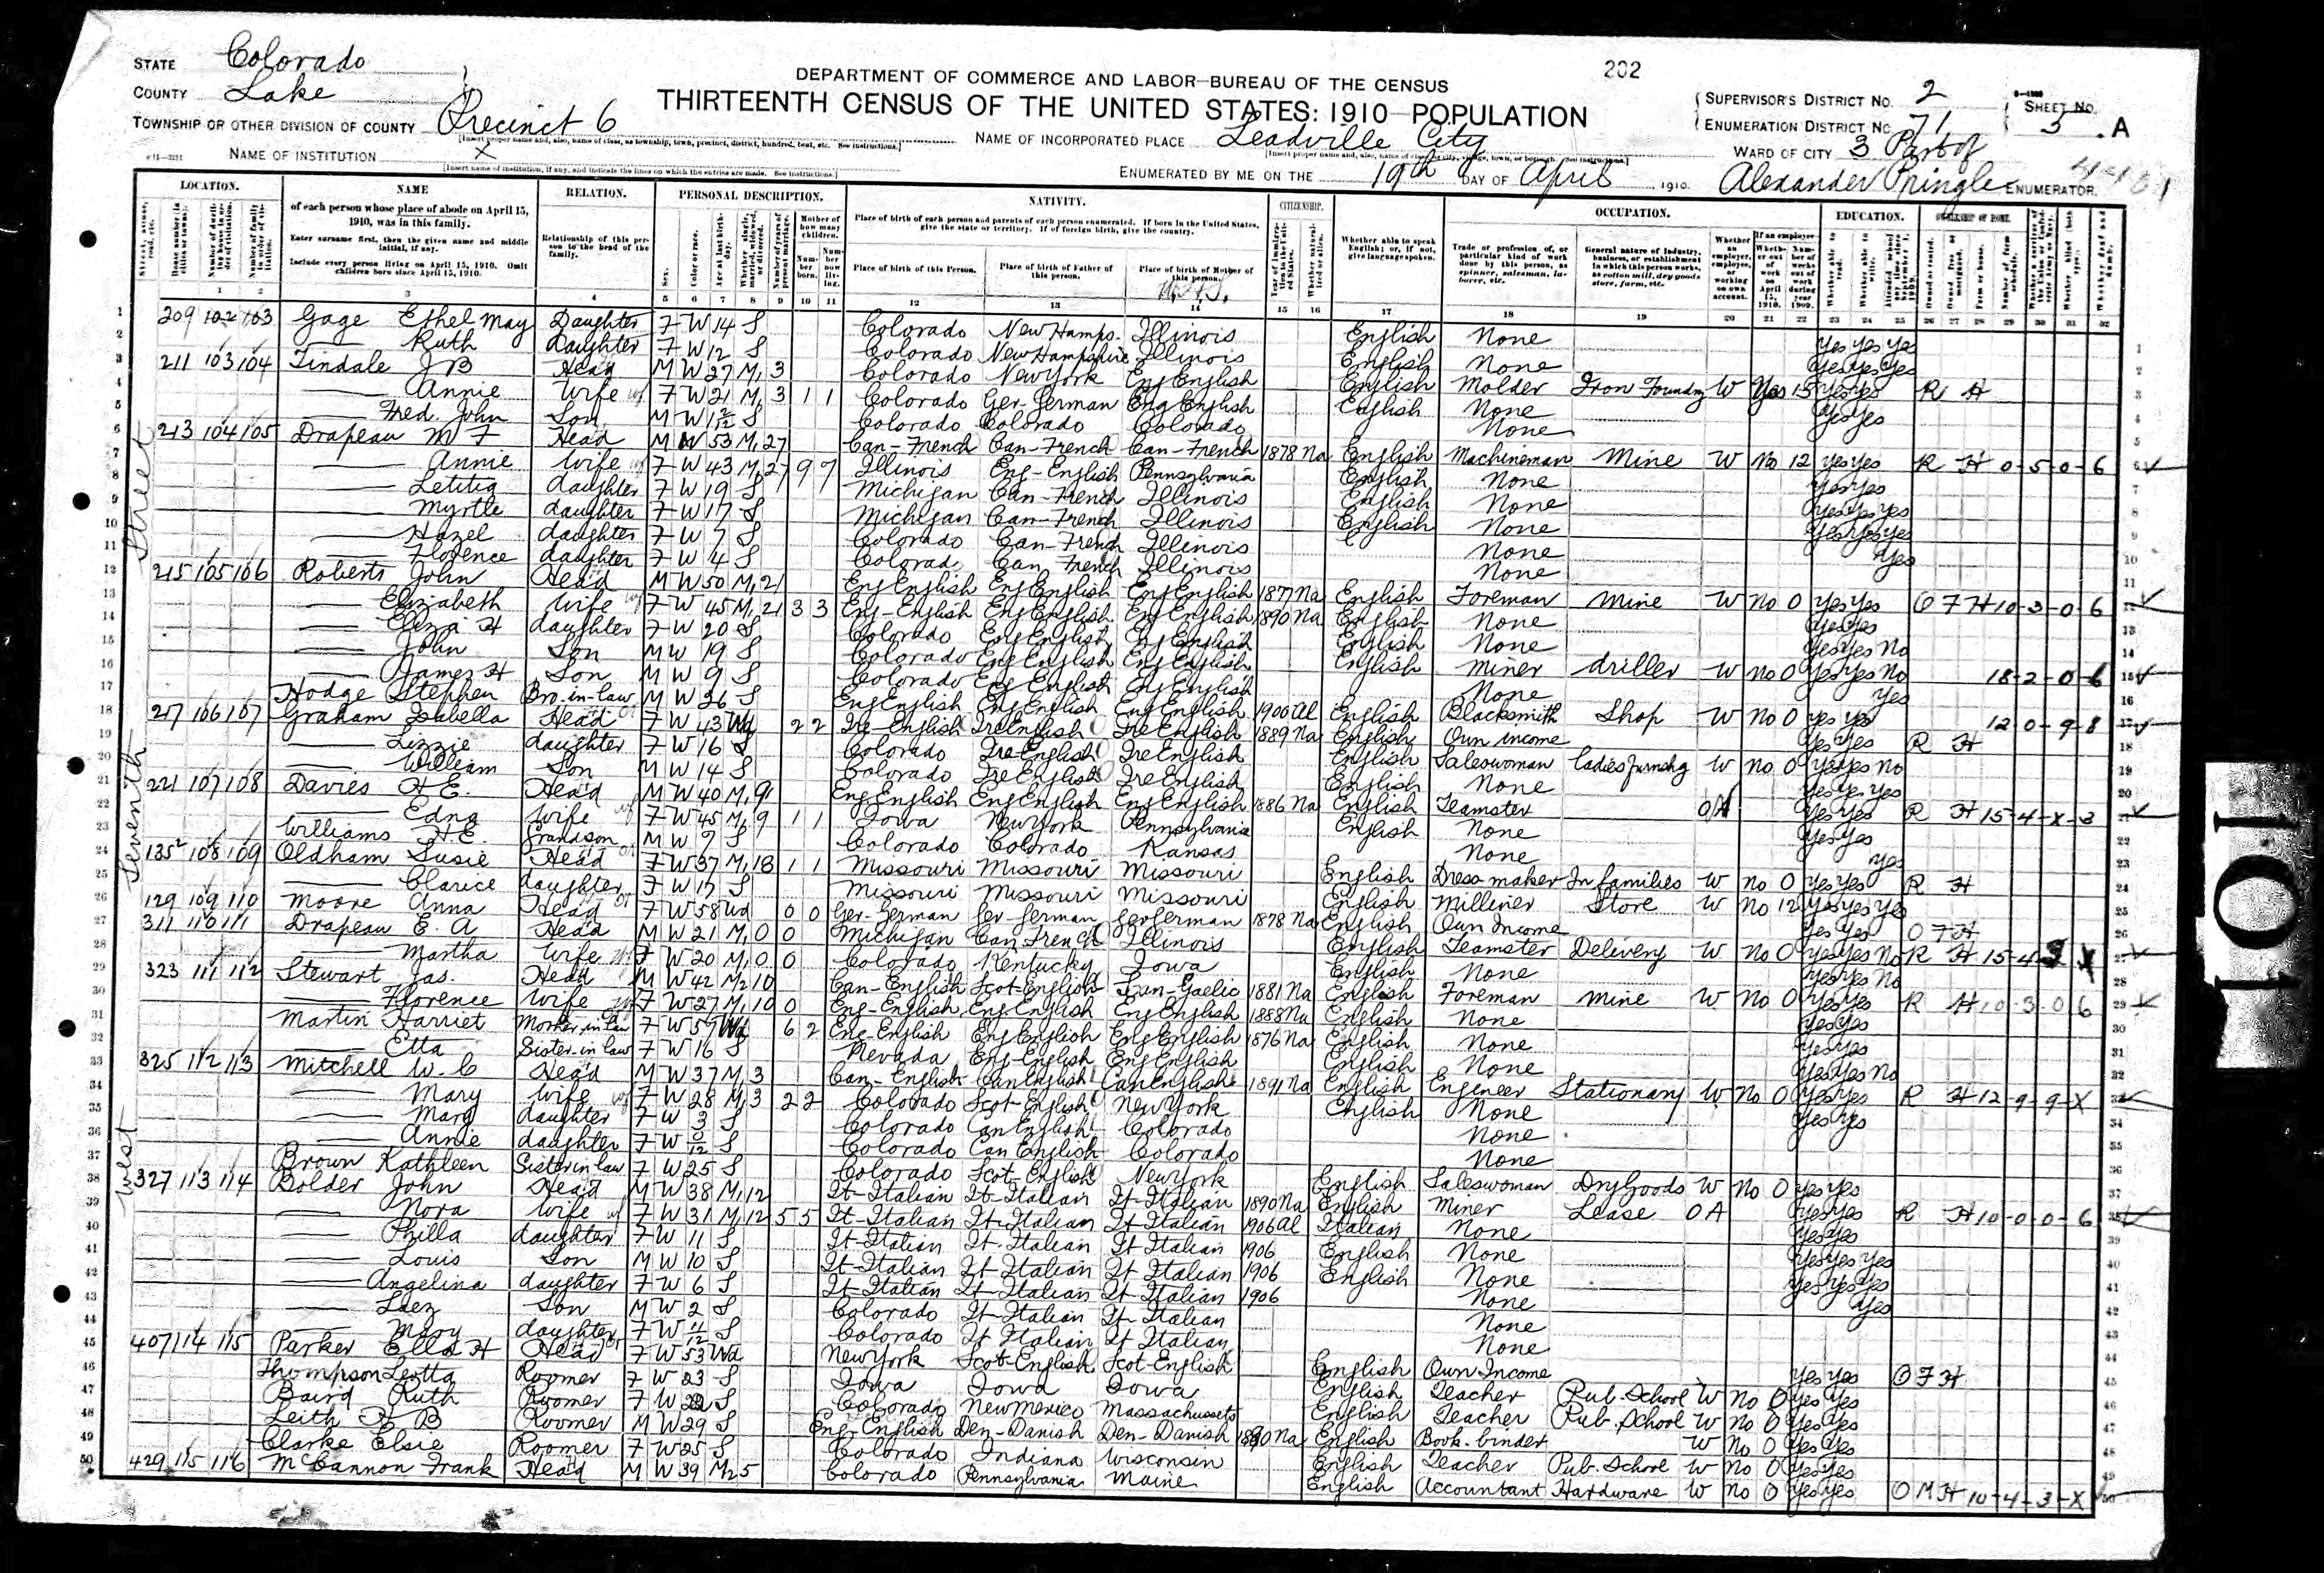 202
STATE Colorado
COUNTY Lake
TOWNSHIP OR OTHER DIVISION OF COUNTY Precinct 6
NAME OF INSTITUTION X
DEPARTMENT OF COMMERCE AND LABOR—BUREAU OF THE CENSUS
THIRTEENTH CENSUS OF THE UNITED STATES: 1910—POPULATION
NAME OF INCORPORATED PLACE Leadville City
ENUMERATED BY ME ON THE 19th DAY OF April, 1910.
SUPERVISOR'S DISTRICT NO. 2
ENUMERATION DISTRICT NO. 71
SHEET NO. 3 A
WARD OF CITY 3 Part of
Alexander Pringle ENUMERATOR.
LOCATION. NAME RELATION. PERSONAL DESCRIPTION. NATIVITY. CITIZENSHIP. OCCUPATION. EDUCATION. OWNERSHIP OF HOME.
of each person whose place of abode on April 15, 1910, was in this family.
Enter surname first, then the given name and middle initial, if any.
Include every person living on April 15, 1910. Omit children born since April 15, 1910.
Relationship of this person to the head of the family.
Place of birth of each person and parents of each person enumerated. If born in the United States, give the state or territory. If of foreign birth, give the country.
Place of birth of this Person. Place of birth of Father of this person. Place of birth of Mother of this person.
Whether able to speak English; or, if not, give language spoken.
Trade or profession of, or particular kind of work done by this person, as spinner, salesman, laborer, etc.
General nature of industry, business, or establishment in which this person works, as cotton mill, dry goods store, farm, etc.
West Seventh Street
1 209 102 103 Gage Ethel May Daughter F W 14 S Colorado New Hamps. Illinois English None Yes Yes Yes
2 Ruth daughter F W 12 S Colorado New Hampshire Illinois English None Yes Yes Yes
3 211 103 104 Tindale J B Head M W 27 M1 3 Colorado New York Eng English English Molder Iron Foundry W Yes 15 Yes Yes R H
4 Annie Wife F W 21 M1 3 1 1 Colorado Ger-German Eng English English None Yes Yes
5 Fred. John Son M W S Colorado Colorado Colorado None
6 213 104 105 Drapeau M F Head M W 53 M1 27 Can-French Can-French Can-French 1878 Na English Machineman Mine W No 12 Yes Yes R H 0-5-0-6
7 Annie Wife F W 43 M1 27 9 7 Illinois Eng-English Pennsylvania English None Yes Yes
8 Letitia daughter F W 19 S Michigan Can-French Illinois English None Yes Yes Yes
9 Myrtle daughter F W 17 S Michigan Can-French Illinois English None Yes Yes Yes
10 Hazel daughter F W 7 S Colorado Can-French Illinois None Yes
11 Florence daughter F W 4 S Colorado Can French Illinois None
12 215 105 106 Roberts John Head M W 50 M1 21 Eng English Eng English Eng English 1877 Na English Foreman Mine W No 0 Yes Yes O F H 10-3-0-6
13 Elizabeth Wife F W 45 M1 21 3 3 Eng-English Eng English Eng English 1890 Na English None Yes Yes
14 Eliza H daughter F W 20 S Colorado Eng English Eng English English None Yes Yes No
15 John Son M W 19 S Colorado Eng English Eng English English Miner driller W No 0 Yes Yes No 18-2-0-6
16 James H Son M W 9 S Colorado Eng English Eng English None Yes
17 Hodge Stephen Bro.in-law M W 36 S Eng English Eng English Eng English 1900 Al English Blacksmith Shop W No 0 Yes Yes 12-0-9-8
18 217 106 107 Graham Isabella Head F W 43 Wd 2 2 Ire-English Ire English Ire English 1889 Na English Own income Yes Yes R H
19 Lizzie daughter F W 16 S Colorado Ire English Ire English English Saleswoman Ladies furnshg W No 0 Yes Yes No
20 William Son M W 14 S Colorado Ire English Ire English English None Yes Yes Yes
21 221 107 108 Davies H E. Head M W 40 M1 9 Eng English Eng English Eng English 1886 Na English Teamster OA Yes Yes R H 15-4-X-3
22 Edna Wife F W 45 M1 9 1 1 Iowa New York Pennsylvania English None Yes Yes
23 Williams H.E. Grandson M W 7 S Colorado Colorado Kansas None Yes
24 135 108 109 Oldham Susie Head F W 37 M1 18 1 1 Missouri Missouri Missouri English Dress maker In families W No 0 Yes Yes R H
25 Clarice daughter F W 17 S Missouri Missouri Missouri English Milliner Store W No 12 Yes Yes Yes
26 129 109 110 Moore Anna Head F W 58 Wd 0 0 Ger-German Ger-German Ger German 1878 Na English Own Income Yes Yes O F H
27 311 110 111 Drapeau E. A Head M W 21 M1 0 0 Michigan Can French Illinois English Teamster Delivery W No 0 Yes Yes No R H 15-4
28 Martha Wife F W 20 M1 0 0 Colorado Kentucky Iowa English None Yes Yes No
29 323 111 112 Stewart Jas. Head M W 42 M2 10 Can-English Scot-English Can-Gaelic 1881 Na English Foreman Mine W No 0 Yes Yes R H 10-3-0-6
30 Florence Wife F W 27 M1 10 0 Eng-English Eng English Eng English 1888 Na English None Yes Yes
31 Martin Harriet Mother in law F W 57 Wd 6 2 Eng-English Eng English Eng English 1876 Na English None Yes Yes
32 Etta Sister-in law F W 16 S Nevada Eng-English Eng English English None Yes Yes No
33 325 112 113 Mitchell W. C Head M W 37 M1 3 Can-English Can English Can English 1891 Na English Engineer Stationary W No 0 Yes Yes R H 12-9-9-X
34 Mary Wife F W 28 M1 3 2 2 Colorado Scot-English New York English None Yes Yes
35 Mary daughter F W 3 S Colorado Can English Colorado None
36 Annie daughter F W 0/12 S Colorado Can English Colorado None
37 Brown Kathleen Sister in law F W 25 S Colorado Scot. English New York English Saleswoman Dry Goods W No 0 Yes Yes
38 327 113 114 Bolder John Head M W 38 M1 12 It-Italian It-Italian It-Italian 1890 Na English Miner Lease OA Yes Yes R H 10-0-0-6
39 Nora Wife F W 31 M1 12 5 5 It-Italian It-Italian It-Italian 1906 Al Italian None Yes Yes
40 Philla daughter F W 11 S It-Italian It. Italian It Italian 1906 English None Yes Yes Yes
41 Louis Son M W 10 S It-Italian It Italian It Italian 1906 English None Yes Yes Yes
42 Angelina daughter F W 6 S It-Italian It-Italian It Italian 1906 None Yes
43 Son M W 2 S Colorado It-Italian It-Italian None
44 Mary daughter F W 11/12 S Colorado It Italian It Italian None
45 407 114 115 Parker Ella H Head F W 53 Wd New York Scot-English Scot-English English Own Income Yes Yes O F H
46 Thompson Leotta Roomer F W 23 S Iowa Iowa Iowa English Teacher Pub. School W No 0 Yes Yes
47 Baird Ruth Roomer F W 22 S Colorado New Mexico Massachusetts English Teacher Pub. School W No 0 Yes Yes
48 Leith B Roomer M W 29 S Eng-English Den-Danish Den-Danish Na English Book-binder W No 0 Yes Yes
49 Clarke Elsie Roomer F W 25 S Colorado Indiana Wisconsin English Teacher Pub. School W No 0 Yes Yes
50 429 115 116 McCannon Frank Head M W 39 M2 5 Colorado Pennsylvania Maine English Accountant Hardware W No 0 Yes Yes O M H 10-4-3-X
101